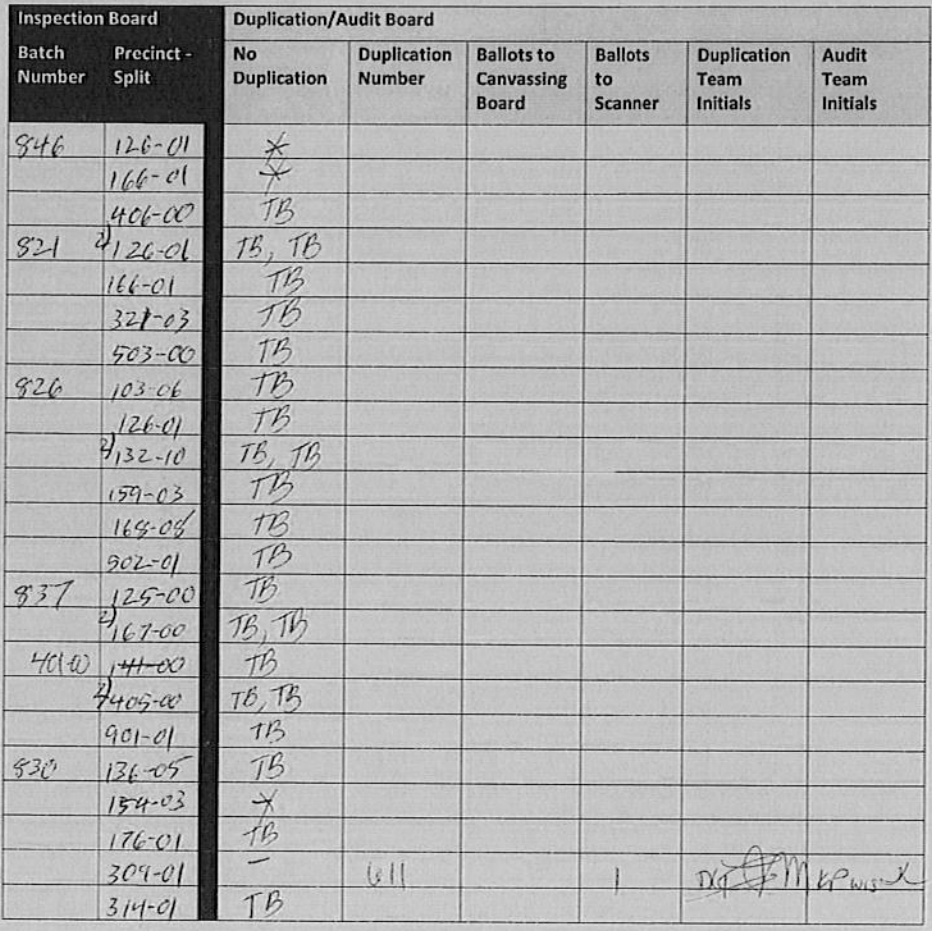 Inspection Board Duplication/Audit Board
Batch Number Precinct - Split No Duplication Duplication Number Ballots to Canvassing Board Ballots to Scanner Duplication Team Initials Audit Team Initials
846 126-01 *
166-01 *
406-00 TB
821 2) 126-01 TB, TB
166-01 TB
321-03 TB
503-00 TB
826 103-06 TB
126-01 TB
2) 132-10 TB, TB
159-03 TB
168-08 TB
902-01 TB
837 125-00 TB
2) 167-00 TB, TB
TB
2) 405-00 TB, TB
901-01 TB
830 136-05 TB
154-03 *
176-01 TB
309-01 – 611 1
314-01 TB